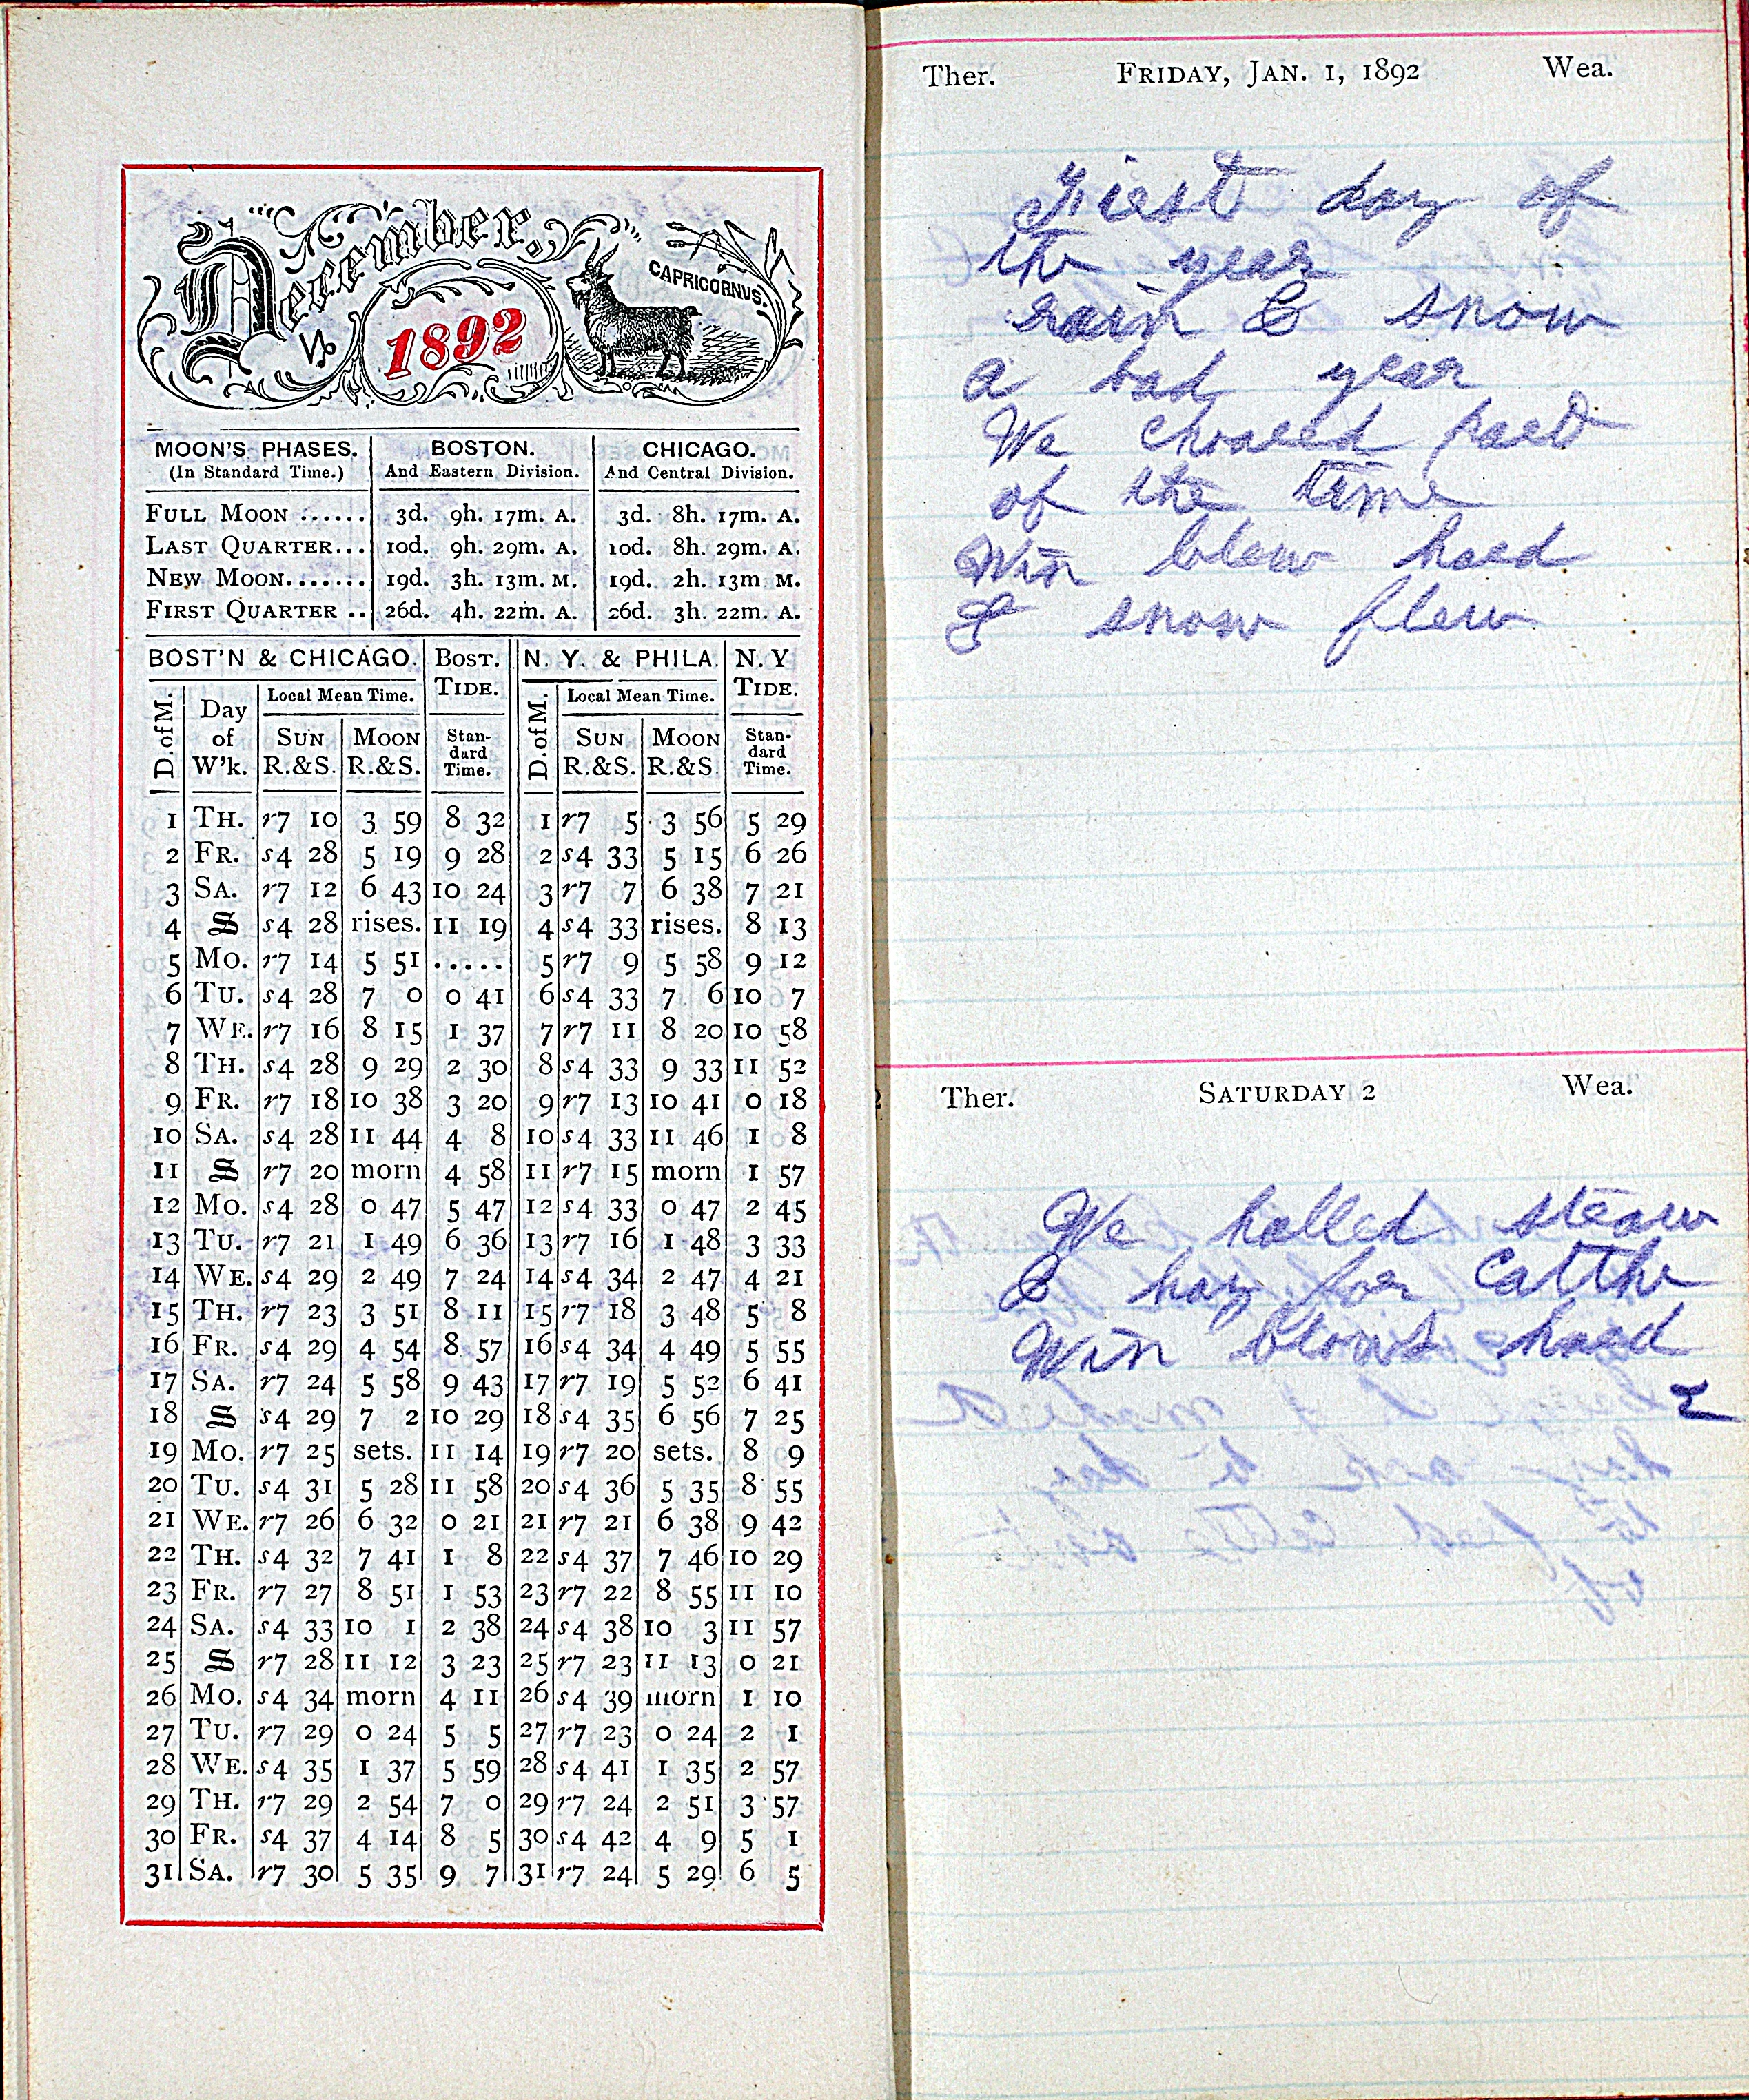 December.
1892
CAPRICORNUS.
MOON'S PHASES. BOSTON. CHICAGO.
(In Standard Time.) And Eastern Division. And Central Division.
FULL MOON ...... 3d. 9h. 17m. A. 3d. 8h. 17m. A.
LAST QUARTER... 10d. 9h. 29m. A. 10d. 8h. 29m. A.
NEW MOON....... 19d. 3h. 13m. M. 19d. 2h. 13m. M.
FIRST QUARTER .. 26d. 4h. 22m. A. 26d. 3h. 22m. A.
BOST'N & CHICAGO. BOST. TIDE. N. Y. & PHILA. N. Y TIDE.
D. of M. Day of W'k. Local Mean Time. SUN R.&S. MOON R.&S. Standard Time. D. of M. Local Mean Time. SUN R.&S. MOON R.&S. Standard Time.
1 TH. r7 10 3 59 8 32 1 r7 5 3 56 5 29
2 FR. s4 28 5 19 9 28 2 s4 33 5 15 6 26
3 SA. r7 12 6 43 10 24 3 r7 7 6 38 7 21
4 S s4 28 rises. 11 19 4 s4 33 rises. 8 13
5 MO. r7 14 5 51 ..... 5 r7 9 5 58 9 12
6 TU. s4 28 7 0 0 41 6 s4 33 7 6 10 7
7 WE. r7 16 8 15 1 37 7 r7 11 8 20 10 58
8 TH. s4 28 9 29 2 30 8 s4 33 9 33 11 52
9 FR. r7 18 10 38 3 20 9 r7 13 10 41 0 18
10 SA. s4 28 11 44 4 8 10 s4 33 11 46 1 8
11 S r7 20 morn 4 58 11 r7 15 morn 1 57
12 MO. s4 28 0 47 5 47 12 s4 33 0 47 2 45
13 TU. r7 21 1 49 6 36 13 r7 16 1 48 3 33
14 WE. s4 29 2 49 7 24 14 s4 34 2 47 4 21
15 TH. r7 23 3 51 8 11 15 r7 18 3 48 5 8
16 FR. s4 29 4 54 8 57 16 s4 34 4 49 5 55
17 SA. r7 24 5 58 9 43 17 r7 19 5 52 6 41
18 S s4 29 7 2 10 29 18 s4 35 6 56 7 25
19 MO. r7 25 sets. 11 14 19 r7 20 sets. 8 9
20 TU. s4 31 5 28 11 58 20 s4 36 5 35 8 55
21 WE. r7 26 6 32 0 21 21 r7 21 6 38 9 42
22 TH. s4 32 7 41 1 8 22 s4 37 7 46 10 29
23 FR. r7 27 8 51 1 53 23 r7 22 8 55 11 10
24 SA. s4 33 10 1 2 38 24 s4 38 10 3 11 57
25 S r7 28 11 12 3 23 25 r7 23 11 13 0 21
26 MO. s4 34 morn 4 11 26 s4 39 morn 1 10
27 TU. r7 29 0 24 5 5 27 r7 23 0 24 2 1
28 WE. s4 35 1 37 5 59 28 s4 41 1 35 2 57
29 TH. r7 29 2 54 7 0 29 r7 24 2 51 3 57
30 FR. s4 37 4 14 8 5 30 s4 42 4 9 5 1
31 SA. r7 30 5 35 9 7 31 r7 24 5 29 6 5
Ther. FRIDAY, JAN. 1, 1892 Wea.
First day of
the year
rain & snow
a bad year
We chored part
of the time
Win blew hard
& snow flew
Ther. SATURDAY 2 Wea.
We halled straw
& hay for Catthe
Win blows hard